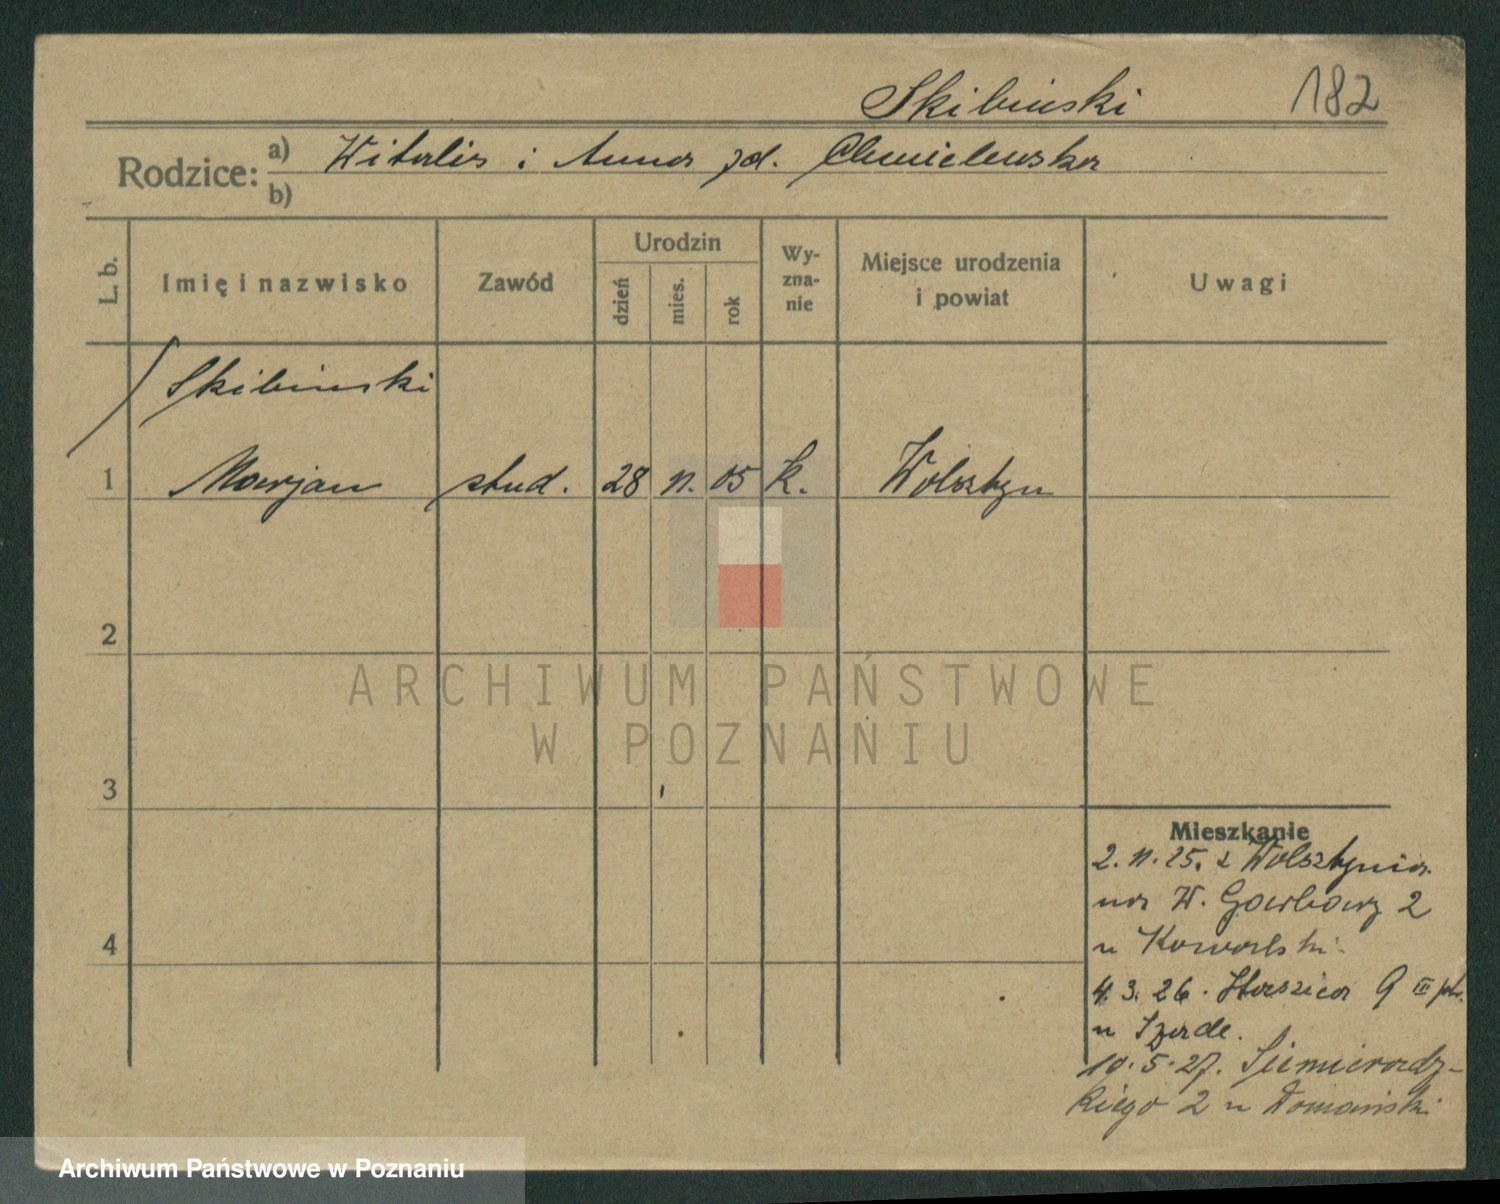 Skibiński 182
Rodzice: a) Witalis i Anna zd. Chmielewska
b)
L. b. Imię i nazwisko Zawód Urodzin dzień mies. rok Wy-zna-nie Miejsce urodzenia i powiat Uwagi
Skibinski
1 Marjan stud. 28 11. 05 k. Wolsztyn
2
ARCHIWUM PAŃSTWOWE
W POZNANIU
3
Mieszkanie
2. 11. 25. z Wolsztynia
na W. Garbary 2
4
u Kowalski
4. 3. 26. Staszica 9 III ptr.
u
10. 5. 27. Siemieradz-
kiego 2 u Domański
Archiwum Państwowe w Poznaniu